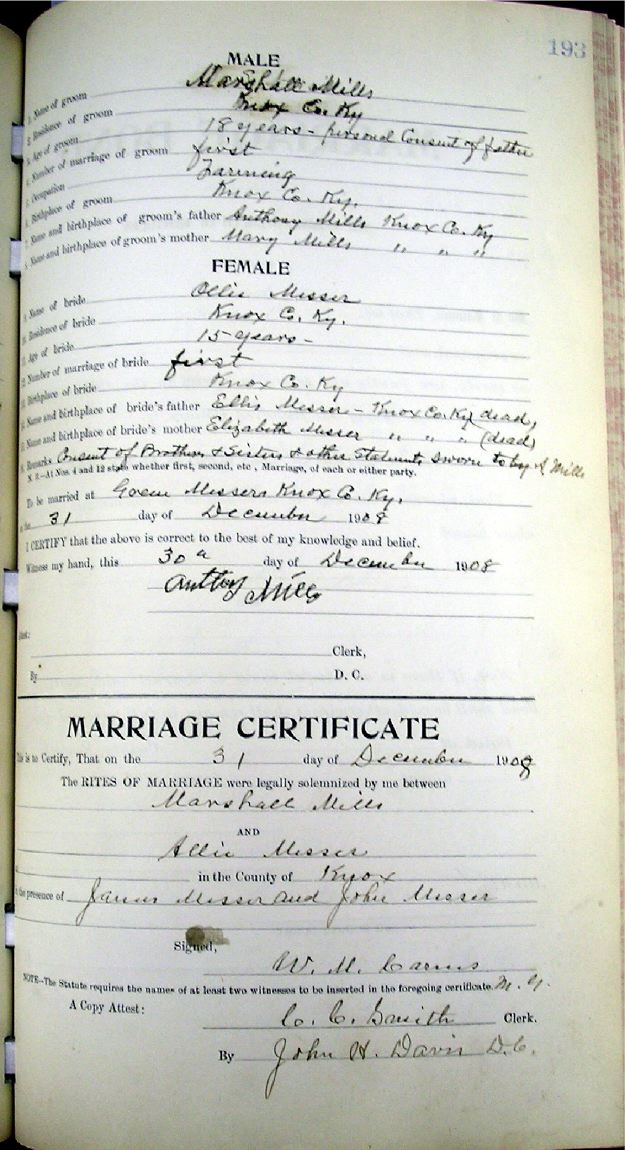 193
MALE
1. Name of groom Marshall Mills
2. Residence of groom Knox Co. Ky
3. Age of groom 18 years - personal Consent of father
4. Number of marriage of groom first
Occupation Farming
Birthplace of groom Knox Co. Ky.
Name and birthplace of groom's father Anthony Mills Knox Co. Ky
Name and birthplace of groom's mother Mary Mills " " "
FEMALE
9. Name of bride Ollie Messer
10. Residence of bride Knox C. Ky.
11. Age of bride 15 years -
12. Number of marriage of bride first
Birthplace of bride Knox Co. Ky
Name and birthplace of bride's father Ellis Messer - Knox Co. Ky (dead)
Name and birthplace of bride's mother Elizabeth Messer " " " (dead)
Remarks Consent of Brothers & Sisters & other Statements sworn to by A Mills
N. B.—At Nos. 4 and 12 state whether first, second, etc., Marriage, of each or either party.
To be married at Messers Knox Co. Ky.
on the 31 day of December 1908
I CERTIFY that the above is correct to the best of my knowledge and belief.
Witness my hand, this 30 day of December 1908
Anthony Mills
Attest:
Clerk,
By D. C.
MARRIAGE CERTIFICATE
This is to Certify, That on the 31 day of December 1908
The RITES OF MARRIAGE were legally solemnized by me between
Marshall Mills
AND
Allie Messer
at in the County of Knox
in the presence of James Messer and John Messer
Signed,
W. M. Carnes
NOTE—The Statute requires the names of at least two witnesses to be inserted in the foregoing certificate. M. G.
A Copy Attest:
C. C. Smith Clerk.
By John H. Davis D.C.